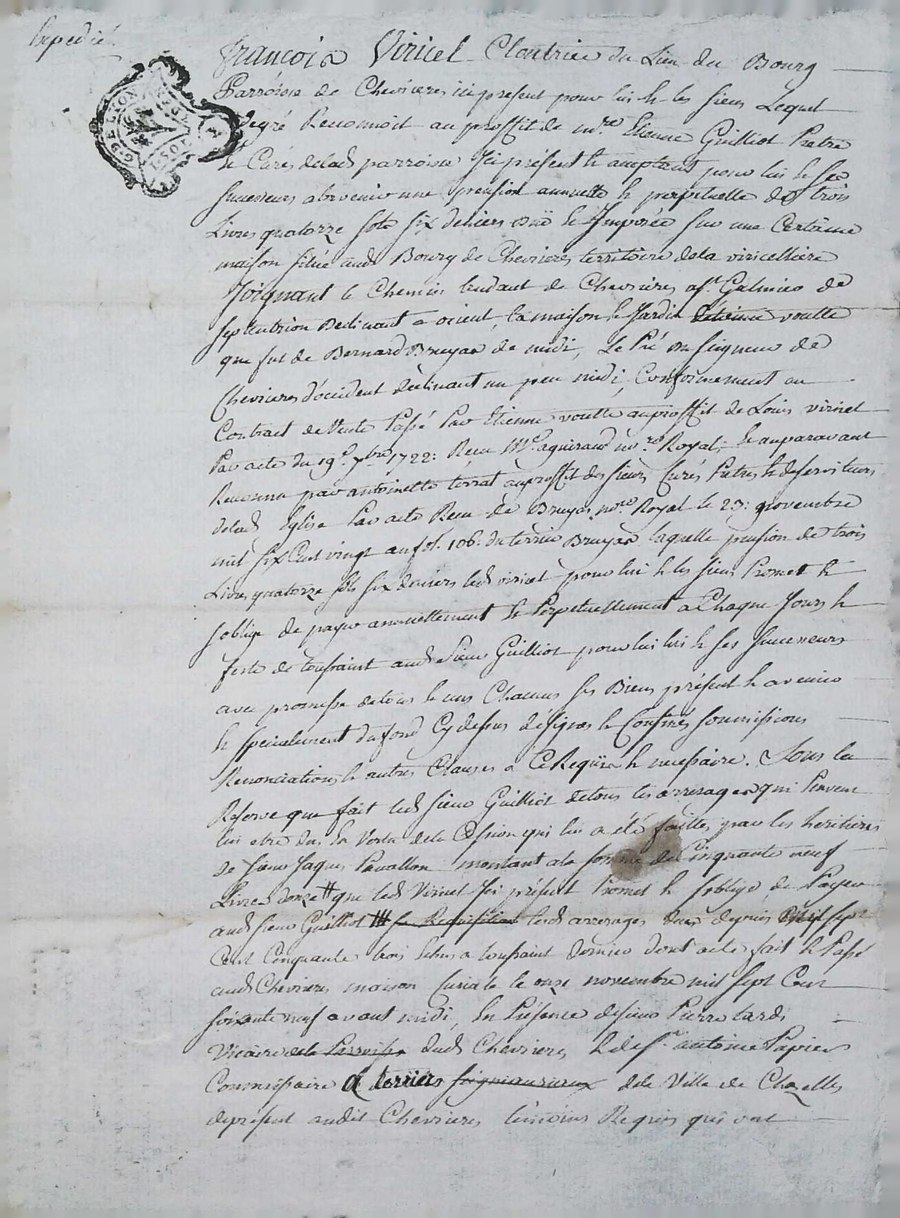 Expedié
G. DE LYON
François Viricel Cloutrier du Lieu du Bourg
Parroisse de Chévrieres ici present pour lui & les siens Lequel
degré Reconnoit au proffit de m.re Etienne Guilliot Pretre
& Curé delad parroisse Ici présent & acceptant pour lui & ses
successeurs abvenir une pension annuelle & perpetuelle de trois
Livres quatorze sols six deniers & Imposée sur une Certaine
maison situé aud Bourg de Chevrieres territoire dela viricelliere
Joignant le Chemin tendant de Chevrieres a St Galmier de
septentrion declinant a orient, la maison & Jardin Etienne voutte
que fut de Bernard Bruyas de midi, Le Pré du seigneur de
Chevrieres d'occident declinant un peu midi, Conformement au
Contract de Vente Passé Par Etienne voutte auproffit de Louis viricel
Par acte du 19.e 7bre 1722: Recu M.e aguiraud no.re Royal, & auparavant
Reconnu par antoinette terrat auproffit des sieurs Curés Pretres & deserviteurs
delad Eglise Par acte Recu de Bruyas no.re Royal le 23: novembre
mil six Cent vingt au fol. 106. du terrier Bruyas laquelle pension de trois
Livres quatorze sols six deniers led viricel pour lui & les siens Promet &
s'oblige de payer annuellement & Perpetuellement a Chaque Jours &
feste de toussaint aud Sieur Guilliot pour lui lui & ses successeurs
avec promesse detous & uns Chacuns ses Biens présent & avenir
& specialement du fond Cy dessus désigné & Confinés soumissions
Renonciations & autres Clauses a Ce Requise & necessaire. Sous la
Réserve que fait led sieur Guilliot detous les arrerages qui peuvent
lui etre dus En Vertu dela Cession qui lui a été faittes par les heritiers
de sieur Jaques Pavallon montant ala somme de Cinquante neuf
Livres douze # que led Viricel Ici présent Promet & s'oblige de Payer
aud sieur Guilliot sa Requisition lesd arrerages dues depuis sept
Cent Cinquante trois a toussaint dernier dont acte fait & Passé
aud Chevrieres maison Curiale le onze novembre mil sept Cent
soixante neuf avant midi, En Présence de sieur Pierre tardi
Vicaire dela Parroisse dud Chevrieres & de s.r antoine Papier
Commissaire a terriers seigneuriaux dela Ville de Chazelles
depresent audit Chevrieres temoins Requis qui ont